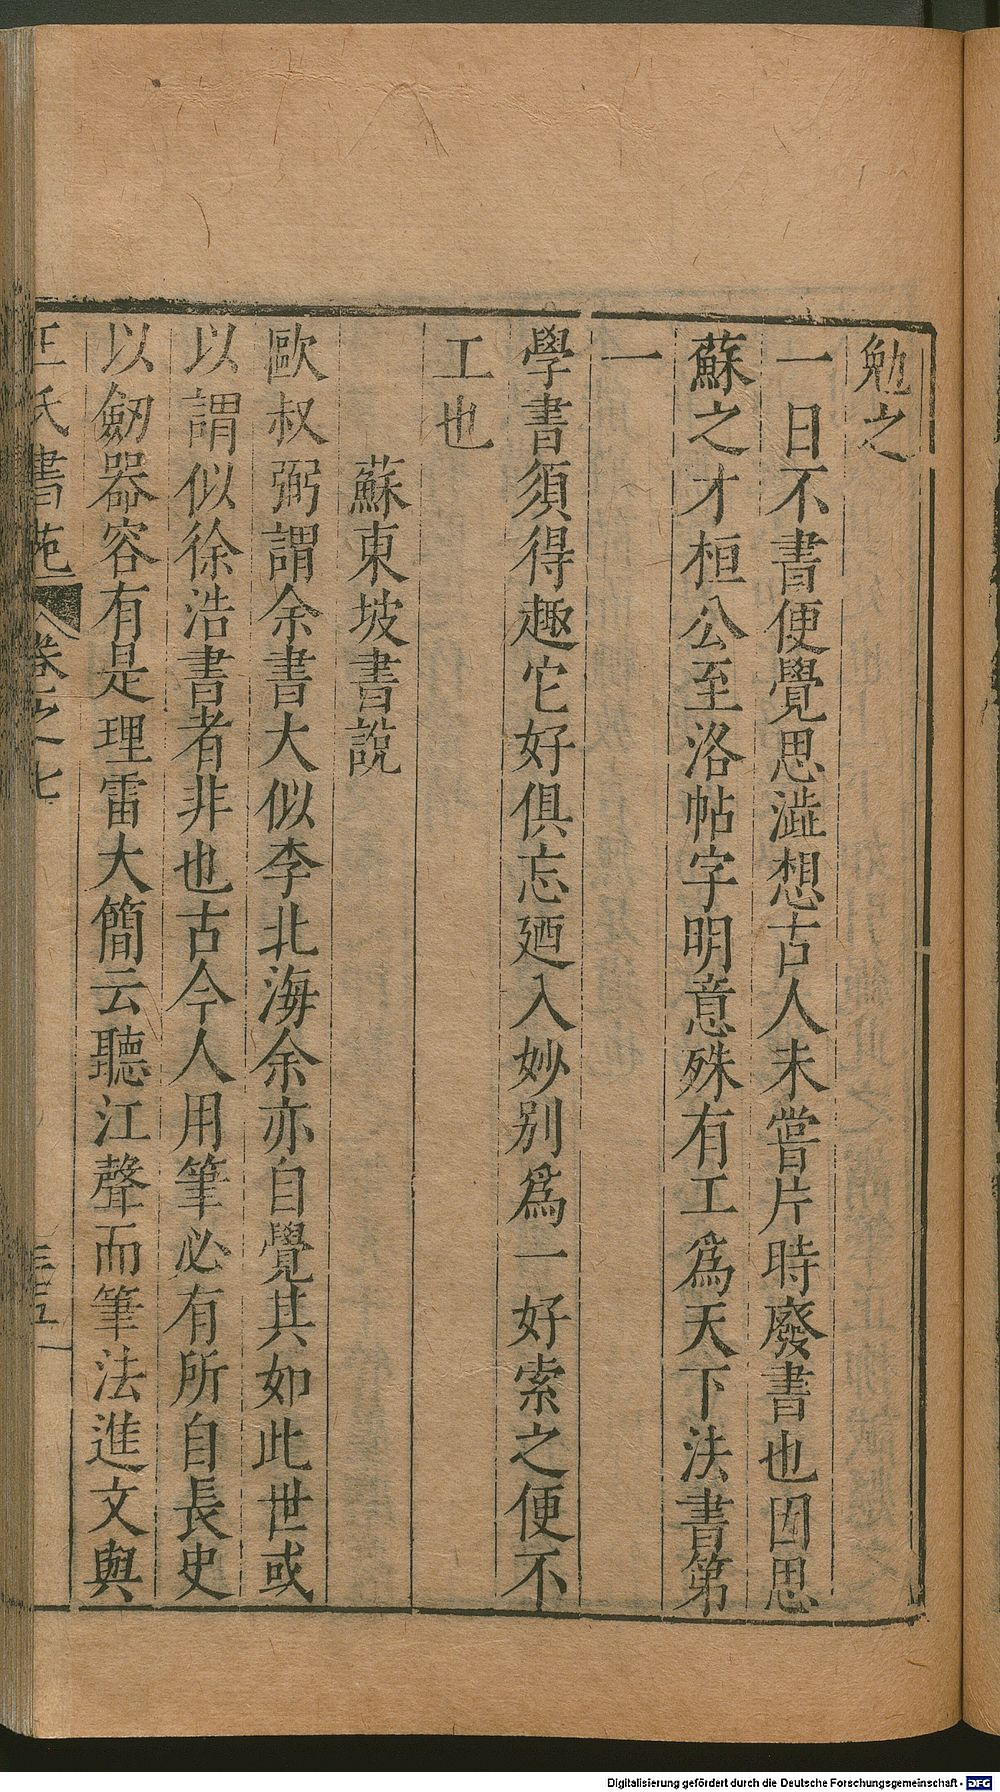 勉之
一日不書便覺思澁想古人未嘗片時廢書也因思
蘇之才桓公至洛帖字明意殊有工爲天下法書第
一
學書須得趣它好俱忘廼入妙別爲一好索之便不
工也
蘇東坡書說
歐叔弼謂余書大似李北海余亦自覺其如此世或
以謂似徐浩書者非也古今人用筆必有所自長史
以劒器容有是理雷大簡云聽江聲而筆法進文與
王氏書苑 卷之七 三五
Digitalisierung gefördert durch die Deutsche Forschungsgemeinschaft - DFG